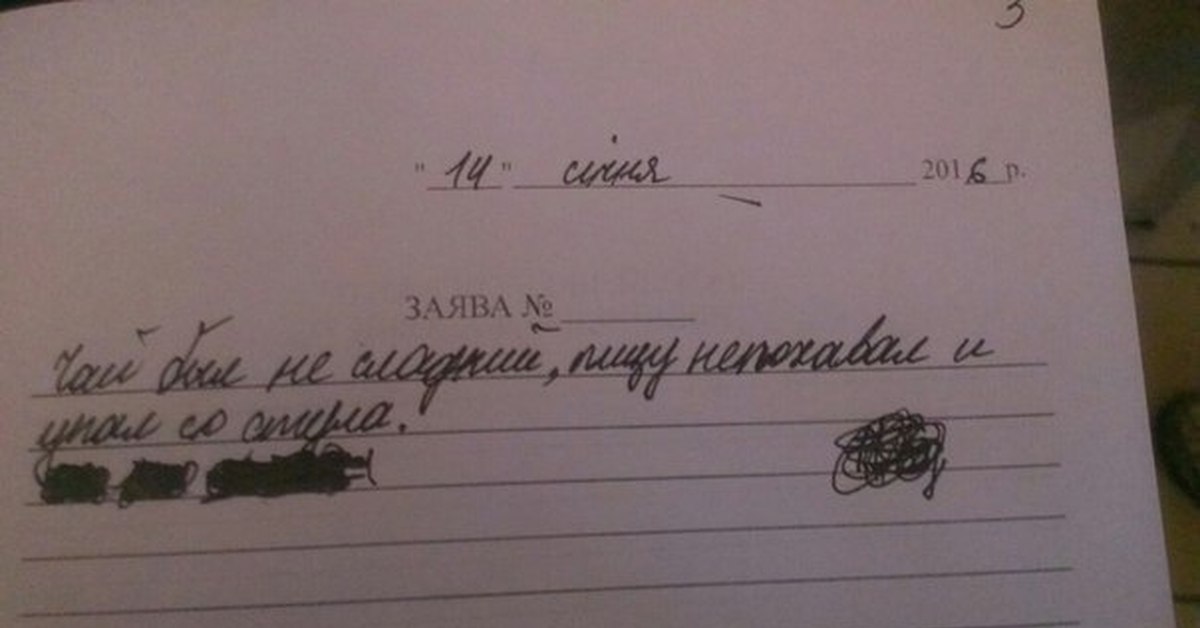 3
"14" січня 2016 р.
ЗАЯВА № 
Чай был не сладкий, пищу непохавал и
упал со стула.